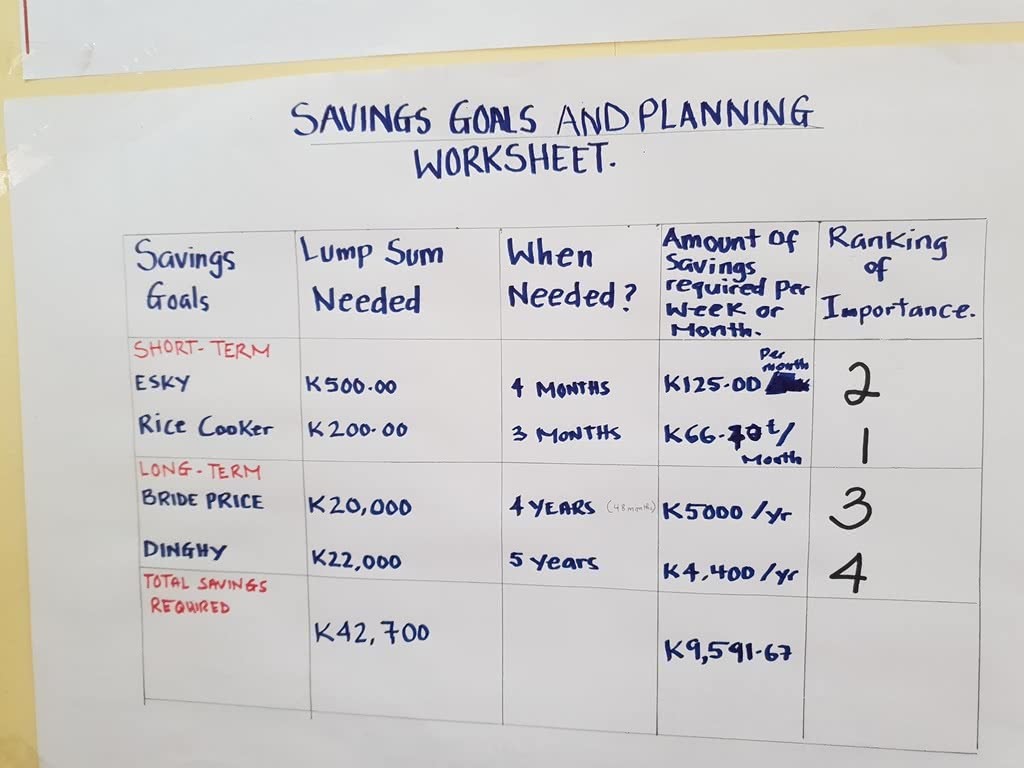 SAVINGS GOALS AND PLANNING
WORKSHEET.
Savings Goals
Lump Sum Needed
When Needed?
Amount of Savings required per Week or Month.
Ranking of Importance.
SHORT-TERM
ESKY K500.00 4 MONTHS K125.00 Per month 2
Rice Cooker K200.00 3 MONTHS K66.70t/ Month 1
LONG-TERM
BRIDE PRICE K20,000 4 YEARS (48 months) K5000/yr 3
DINGHY K22,000 5 years K4,400/yr 4
TOTAL SAVINGS REQUIRED K42,700 K9,591.67